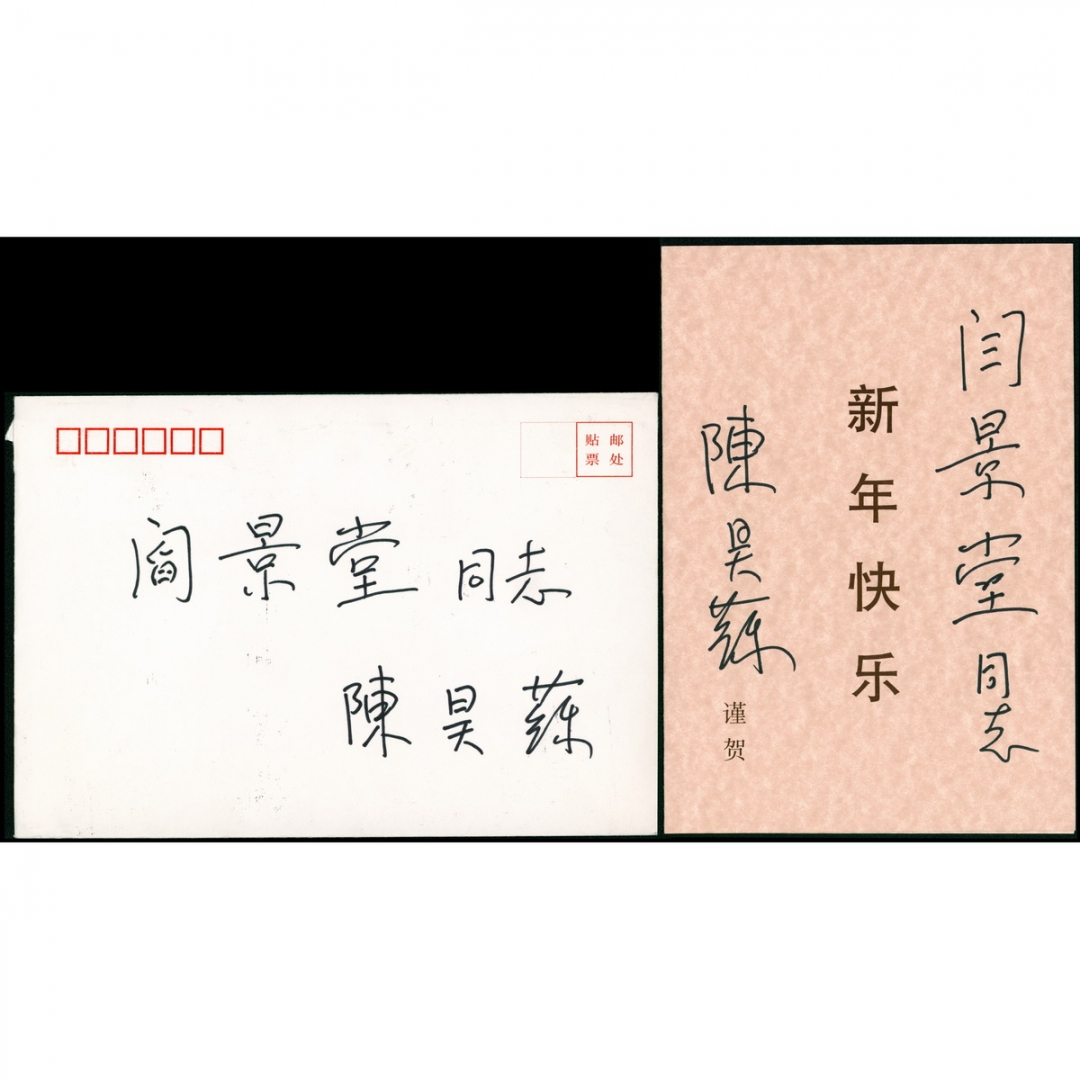 贴邮
票处
阎景堂同志
陳昊蘇
闫景堂同志
新年快乐
陳昊蘇谨贺